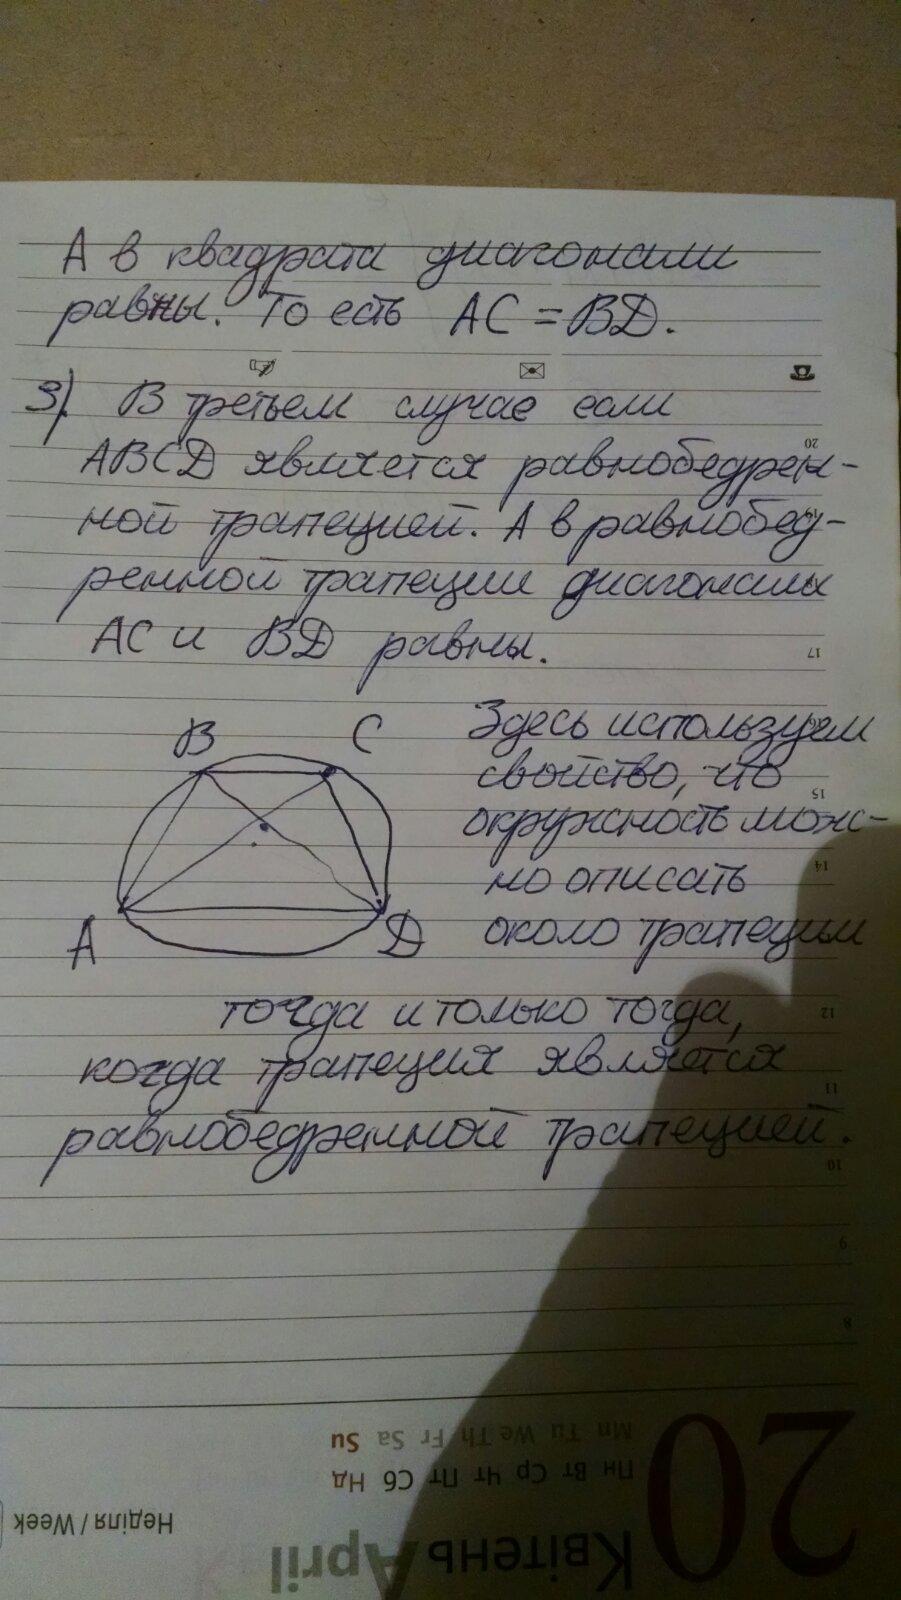 А в квадрата диагонали
равны. То есть AC = BD.
3). В третьем случае если
ABCD является равнобедрен-
ной трапецией. А в равнобед-
ренной трапеции диагонали
AC и BD равны.
B C
A D
Здесь используем
свойство, что
окружность мож-
но описать
около трапеции
тогда и только тогда,
когда трапеция является
равнобедренной трапецией.
20
19
17
15
14
12
11
10
9
8
Mn Tu We Th Fr Sa Su
Пн Вт Ср Чт Пт Сб Нд
Неділя / Week
Квітень April
20